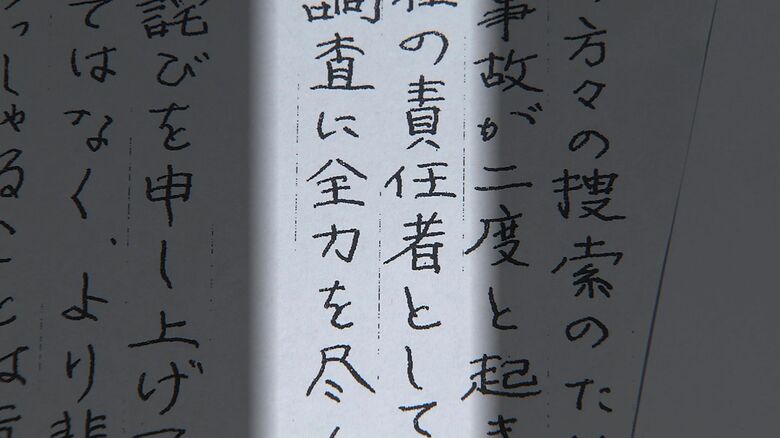 方々の捜索のた
事故が二度と起き
の責任者として
調査に全力を尽く
詫びを申し上げ
てはなく、より
っしゃる